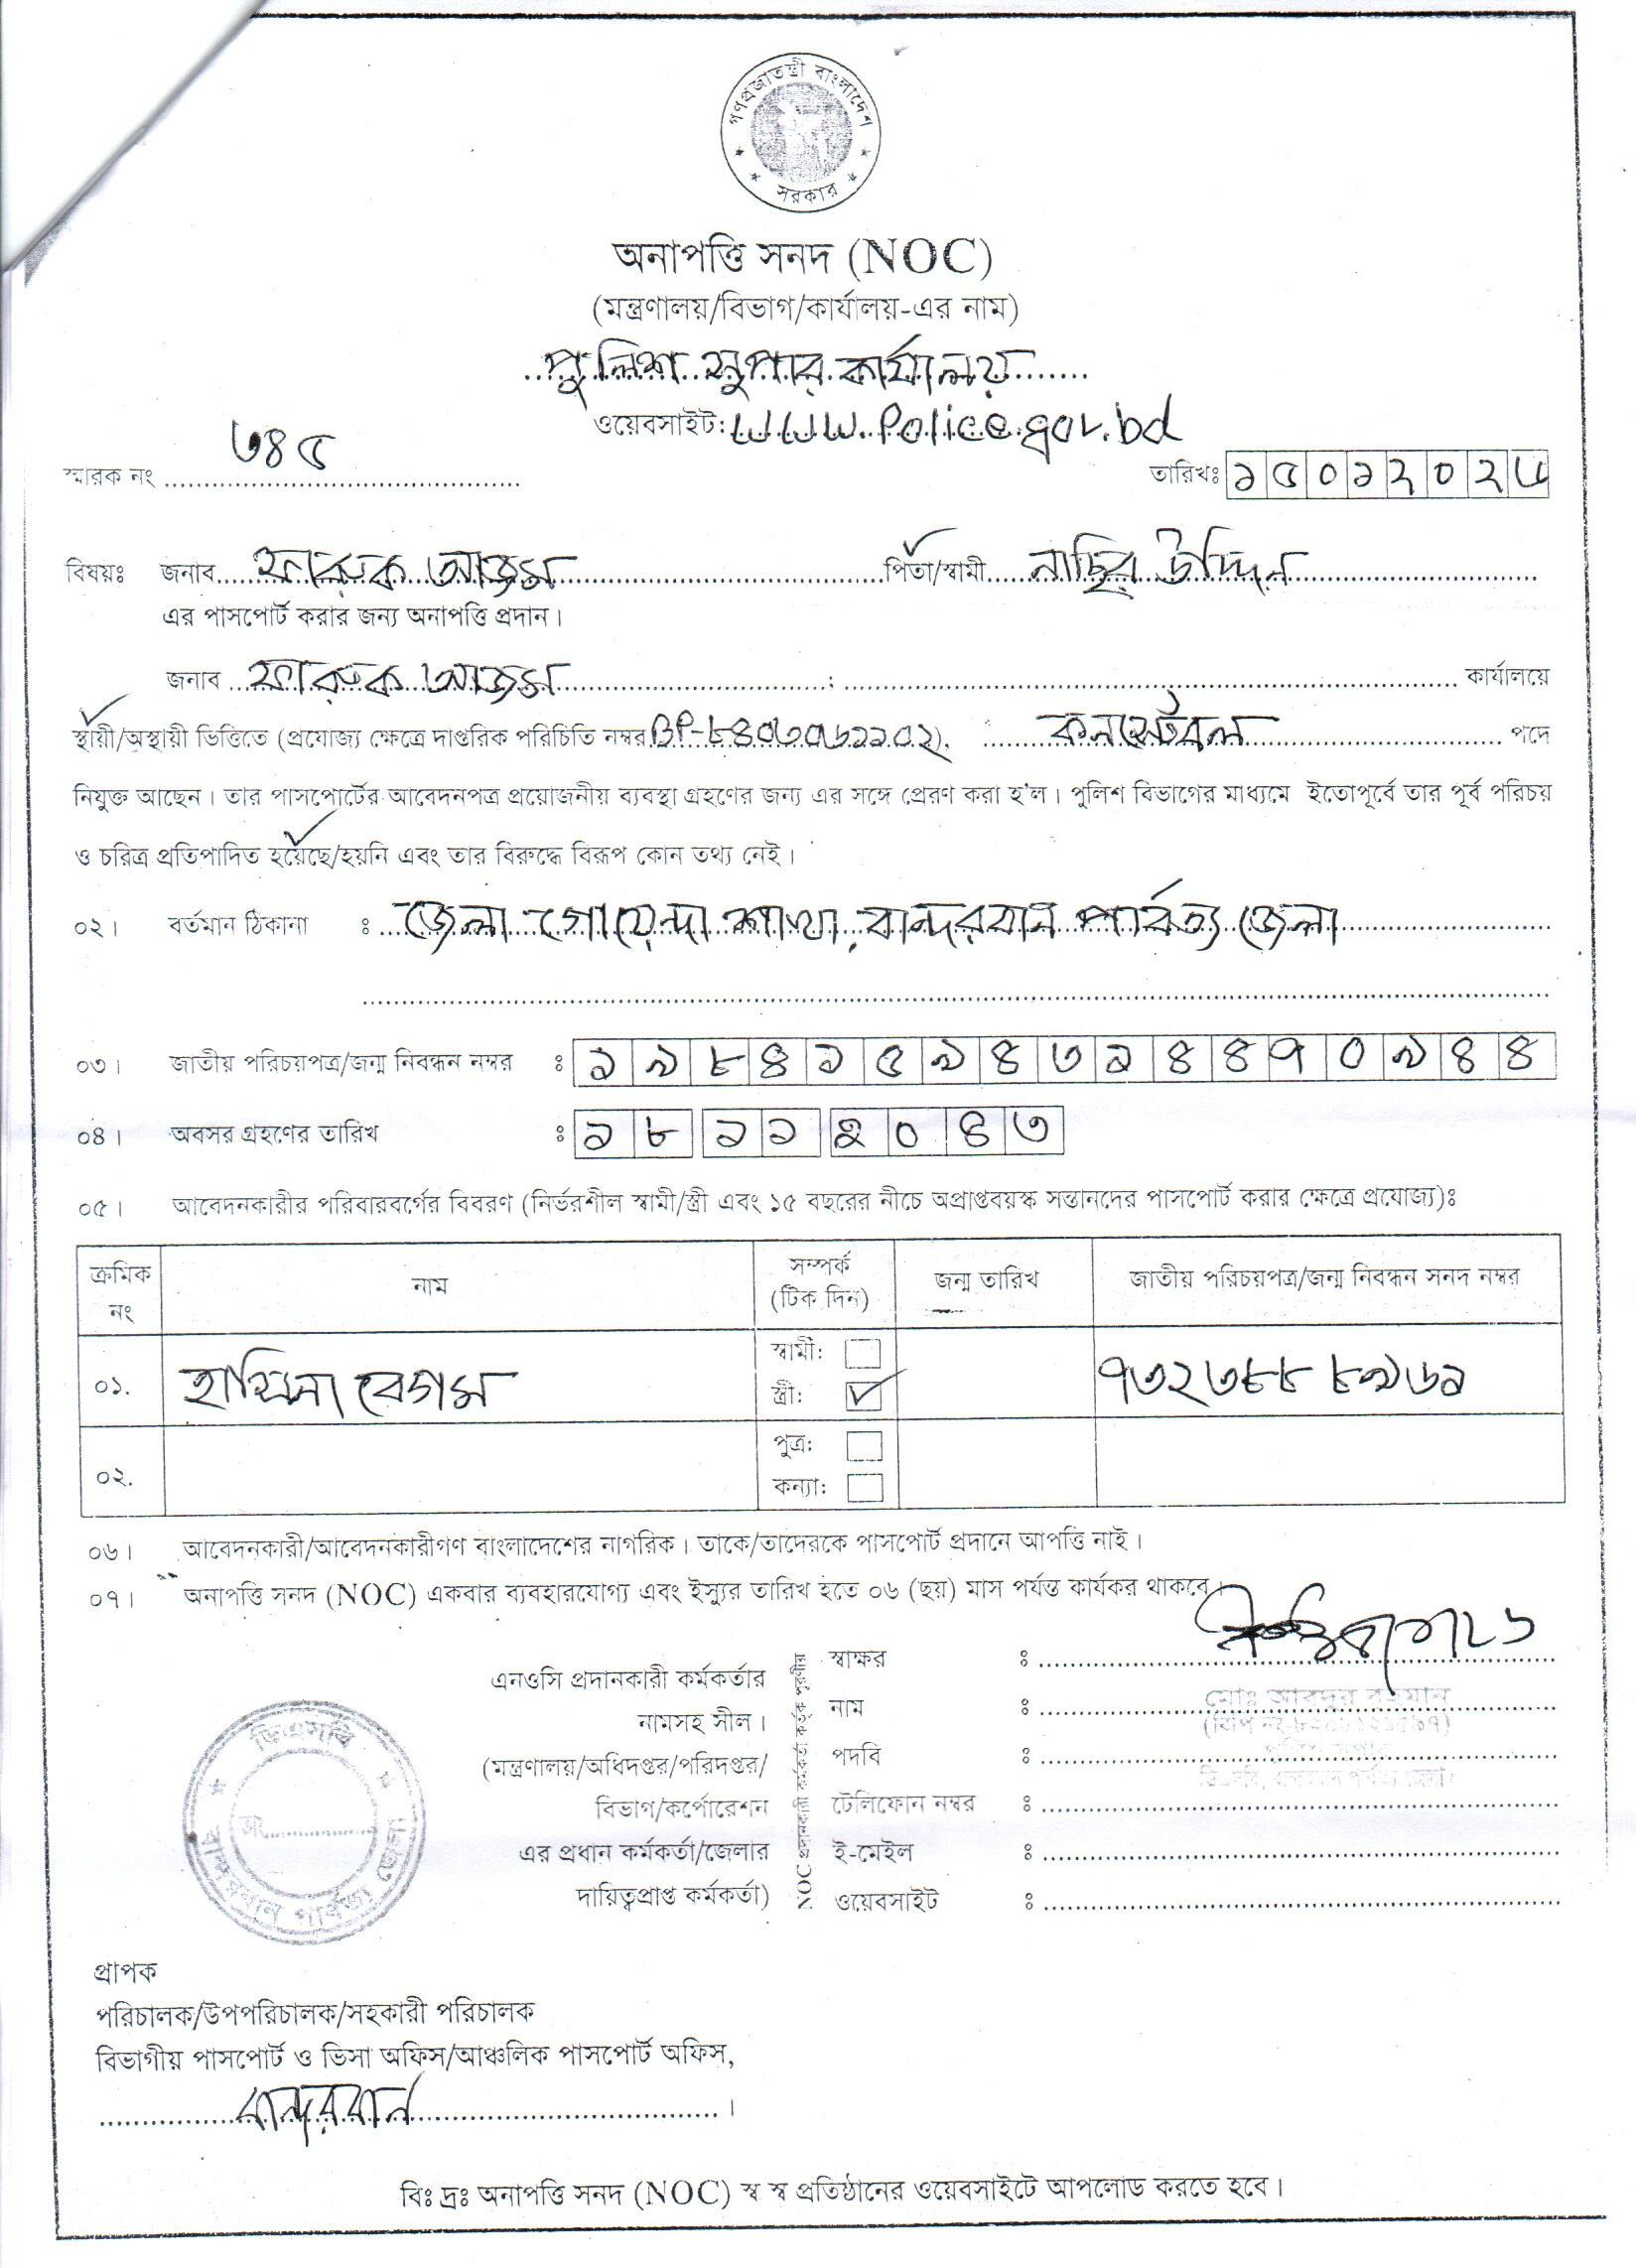 গণপ্রজাতন্ত্রী বাংলাদেশ
সরকার
অনাপত্তি সনদ (NOC)
(মন্ত্রণালয়/বিভাগ/কার্যালয়-এর নাম)
পুলিশ সুপার কার্যালয়
ওয়েবসাইট: www.Police.gov.bd
স্মারক নং ৩৪৫
তারিখঃ ১৫০১২০২৬
বিষয়ঃ জনাব ফারুক আজম পিতা/স্বামী নাছির উদ্দিন
এর পাসপোর্ট করার জন্য অনাপত্তি প্রদান।
জনাব ফারুক আজম : কার্যালয়ে
স্থায়ী/অস্থায়ী ভিত্তিতে (প্রযোজ্য ক্ষেত্রে দাপ্তরিক পরিচিতি নম্বর BP-৮৪০৩০৬১১০২), কনস্টেবল পদে
নিযুক্ত আছেন। তার পাসপোর্টের আবেদনপত্র প্রয়োজনীয় ব্যবস্থা গ্রহণের জন্য এর সঙ্গে প্রেরণ করা হ'ল। পুলিশ বিভাগের মাধ্যমে ইতোপূর্বে তার পূর্ব পরিচয়
ও চরিত্র প্রতিপাদিত হয়েছে/হয়নি এবং তার বিরুদ্ধে বিরূপ কোন তথ্য নেই।
০২। বর্তমান ঠিকানা ঃ জেলা গোয়েন্দা শাখা, বান্দরবান পার্বত্য জেলা
০৩। জাতীয় পরিচয়পত্র/জন্ম নিবন্ধন নম্বর ঃ ১৯৮৪১৫৯৪৩১৪৪৭০৯৪৪
০৪। অবসর গ্রহণের তারিখ ঃ ১৮১১২০৪৩
০৫। আবেদনকারীর পরিবারবর্গের বিবরণ (নির্ভরশীল স্বামী/স্ত্রী এবং ১৫ বছরের নীচে অপ্রাপ্তবয়স্ক সন্তানদের পাসপোর্ট করার ক্ষেত্রে প্রযোজ্য)ঃ
ক্রমিক নং নাম সম্পর্ক (টিক দিন) জন্ম তারিখ জাতীয় পরিচয়পত্র/জন্ম নিবন্ধন সনদ নম্বর
স্বামী:
০১. হাসিনা বেগম স্ত্রী: ৭৩২৩৮৮৮৯৬১
পুত্র:
০২. কন্যা:
০৬। আবেদনকারী/আবেদনকারীগণ বাংলাদেশের নাগরিক। তাকে/তাদেরকে পাসপোর্ট প্রদানে আপত্তি নাই।
০৭। অনাপত্তি সনদ (NOC) একবার ব্যবহারযোগ্য এবং ইস্যুর তারিখ হতে ০৬ (ছয়) মাস পর্যন্ত কার্যকর থাকবে।
এনওসি প্রদানকারী কর্মকর্তার
নামসহ সীল।
(মন্ত্রণালয়/অধিদপ্তর/পরিদপ্তর/
বিভাগ/কর্পোরেশন
এর প্রধান কর্মকর্তা/জেলার
দায়িত্বপ্রাপ্ত কর্মকর্তা)
NOC প্রদানকারী কর্মকর্তা কর্তৃক পূরণীয়
স্বাক্ষর ঃ
নাম ঃ মোঃ আবদুর রহমান
পদবি ঃ পুলিশ সুপার
টেলিফোন নম্বর ঃ
ই-মেইল ঃ
ওয়েবসাইট ঃ
ডিএসবি
নং
বান্দরবান পার্বত্য জেলা
প্রাপক
পরিচালক/উপপরিচালক/সহকারী পরিচালক
বিভাগীয় পাসপোর্ট ও ভিসা অফিস/আঞ্চলিক পাসপোর্ট অফিস,
বান্দরবান।
বিঃ দ্রঃ অনাপত্তি সনদ (NOC) স্ব স্ব প্রতিষ্ঠানের ওয়েবসাইটে আপলোড করতে হবে।